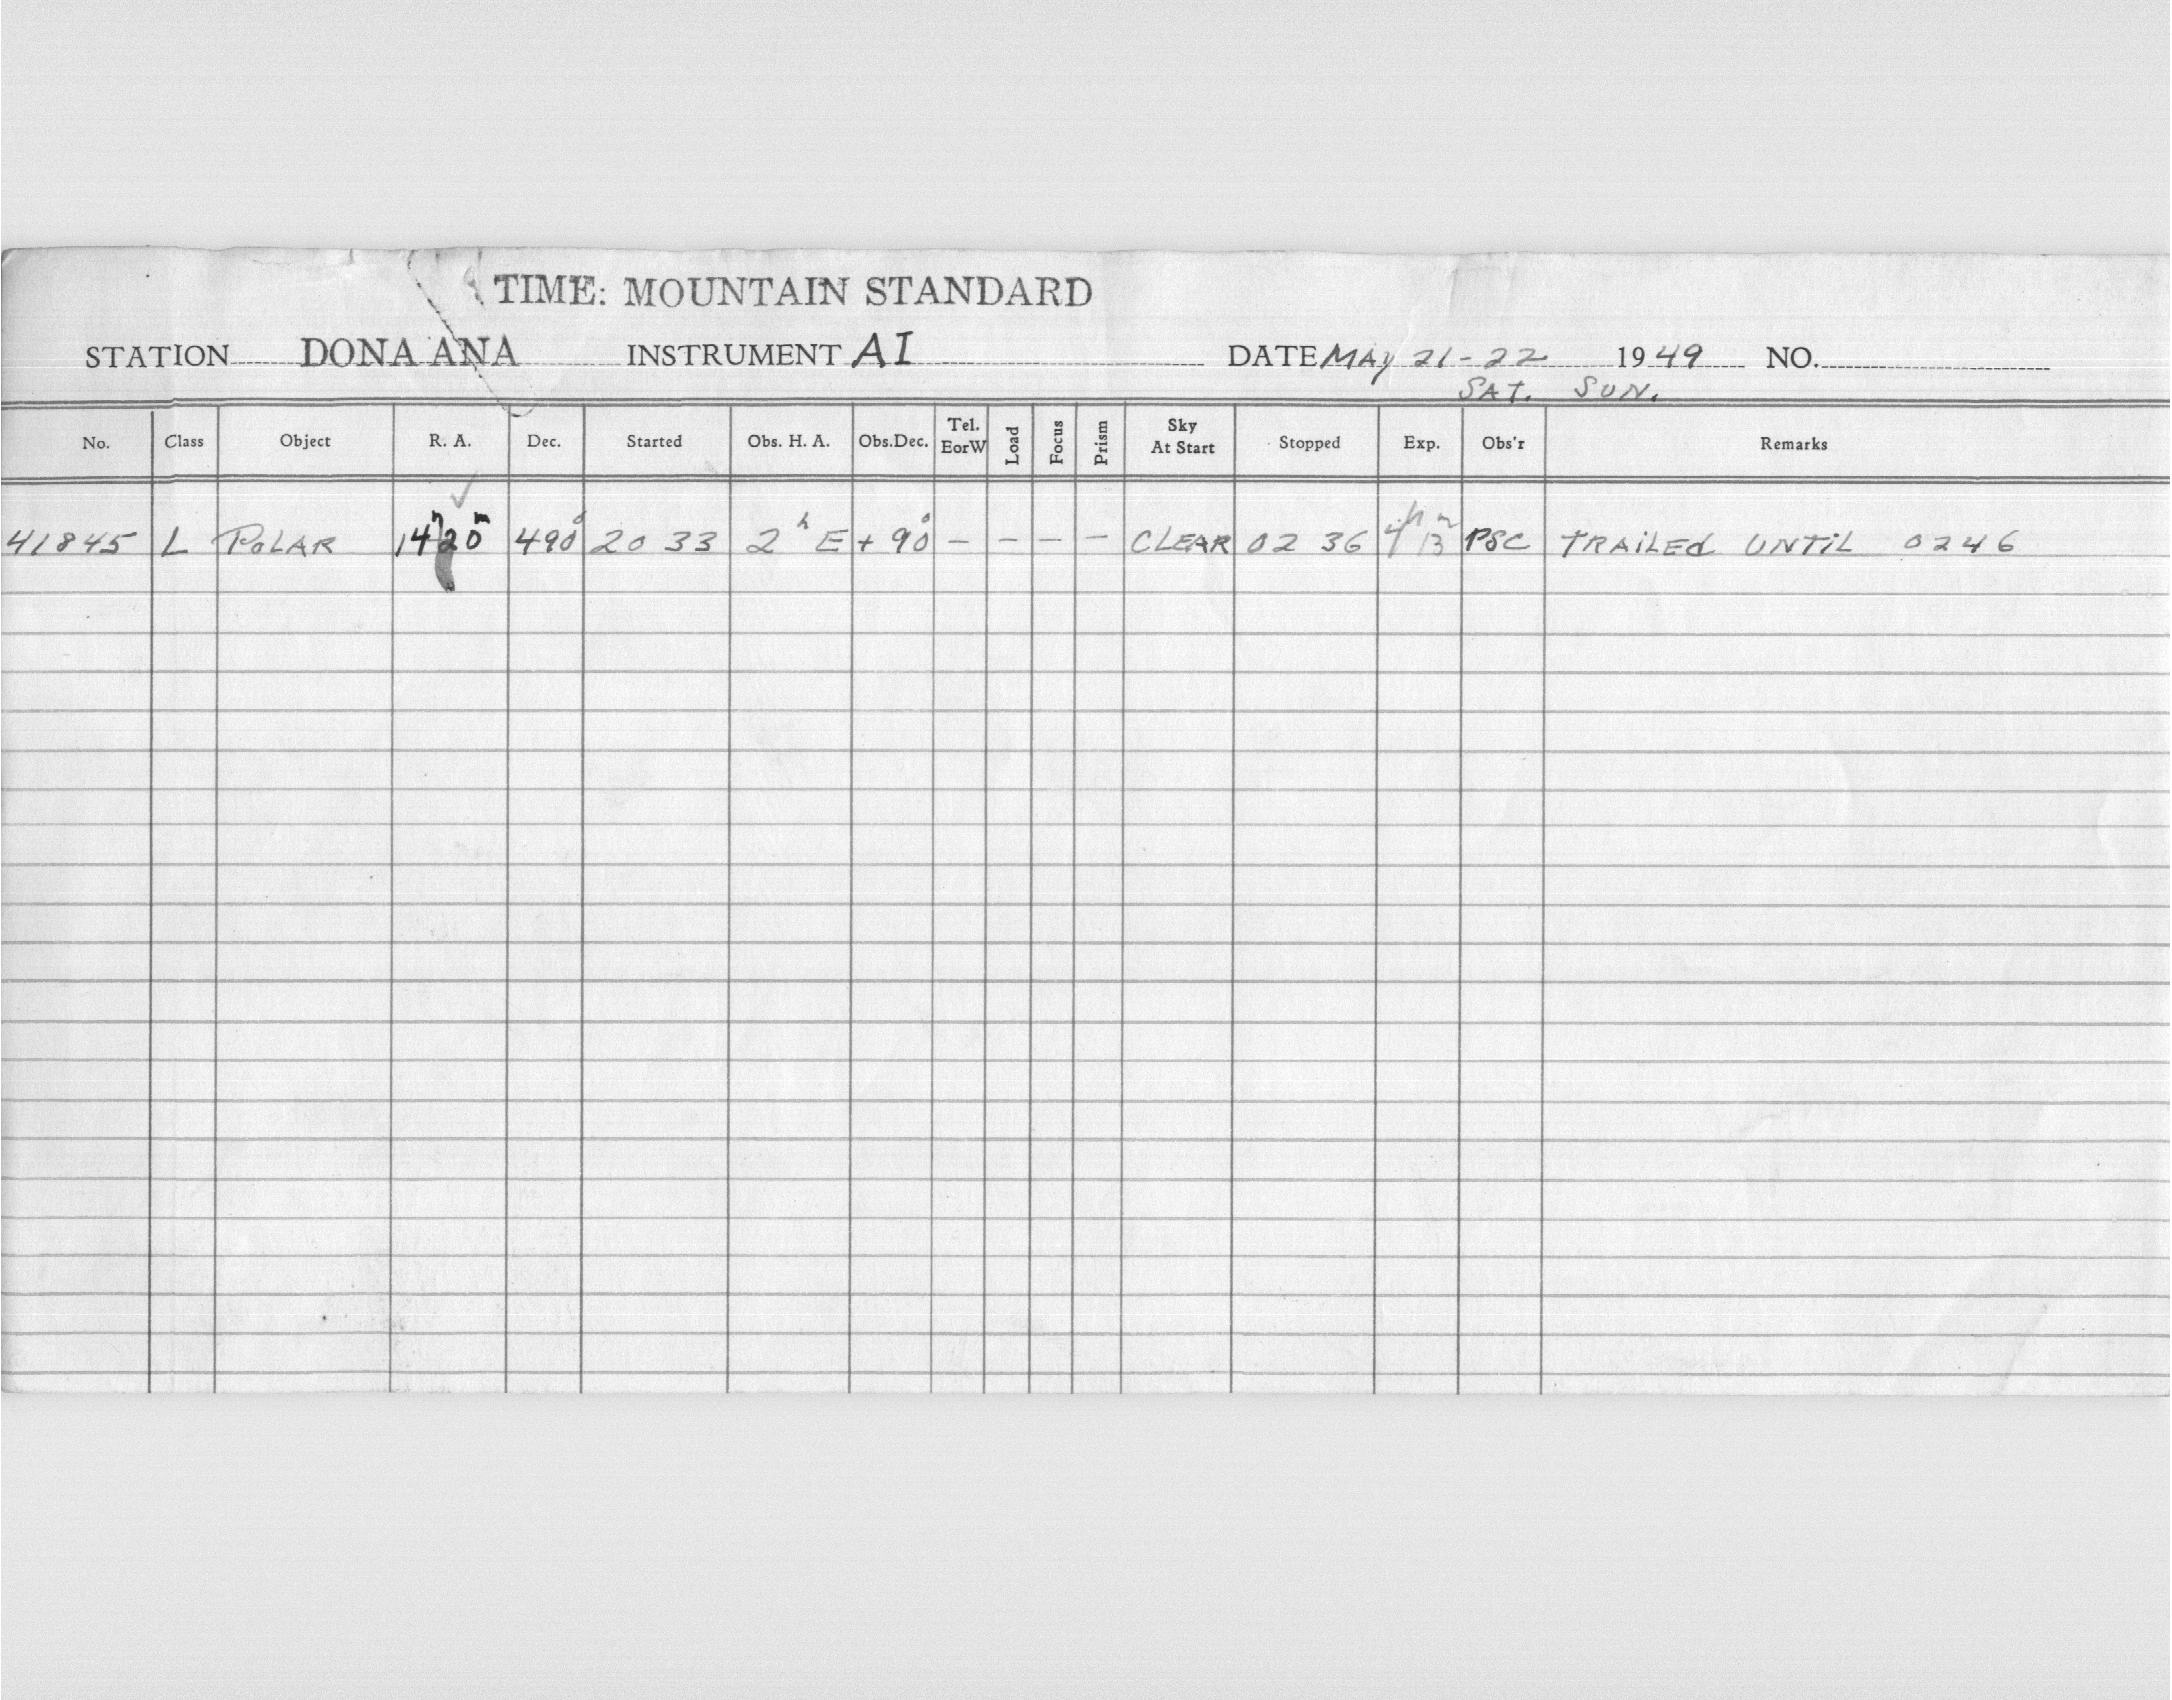 TIME: MOUNTAIN STANDARD
STATION DONA ANA INSTRUMENT AI DATE MAY 21-22 1949 NO.
SAT. SUN.
No. Class Object R. A. Dec. Started Obs. H. A. Obs.Dec. Tel. EorW Load Focus Prism Sky At Start Stopped Exp. Obs'r Remarks
41845 L POLAR 14h 20m +90° 20 33 2h E +90° - - - - CLEAR 02 36 PSC TRAILED UNTIL 0246